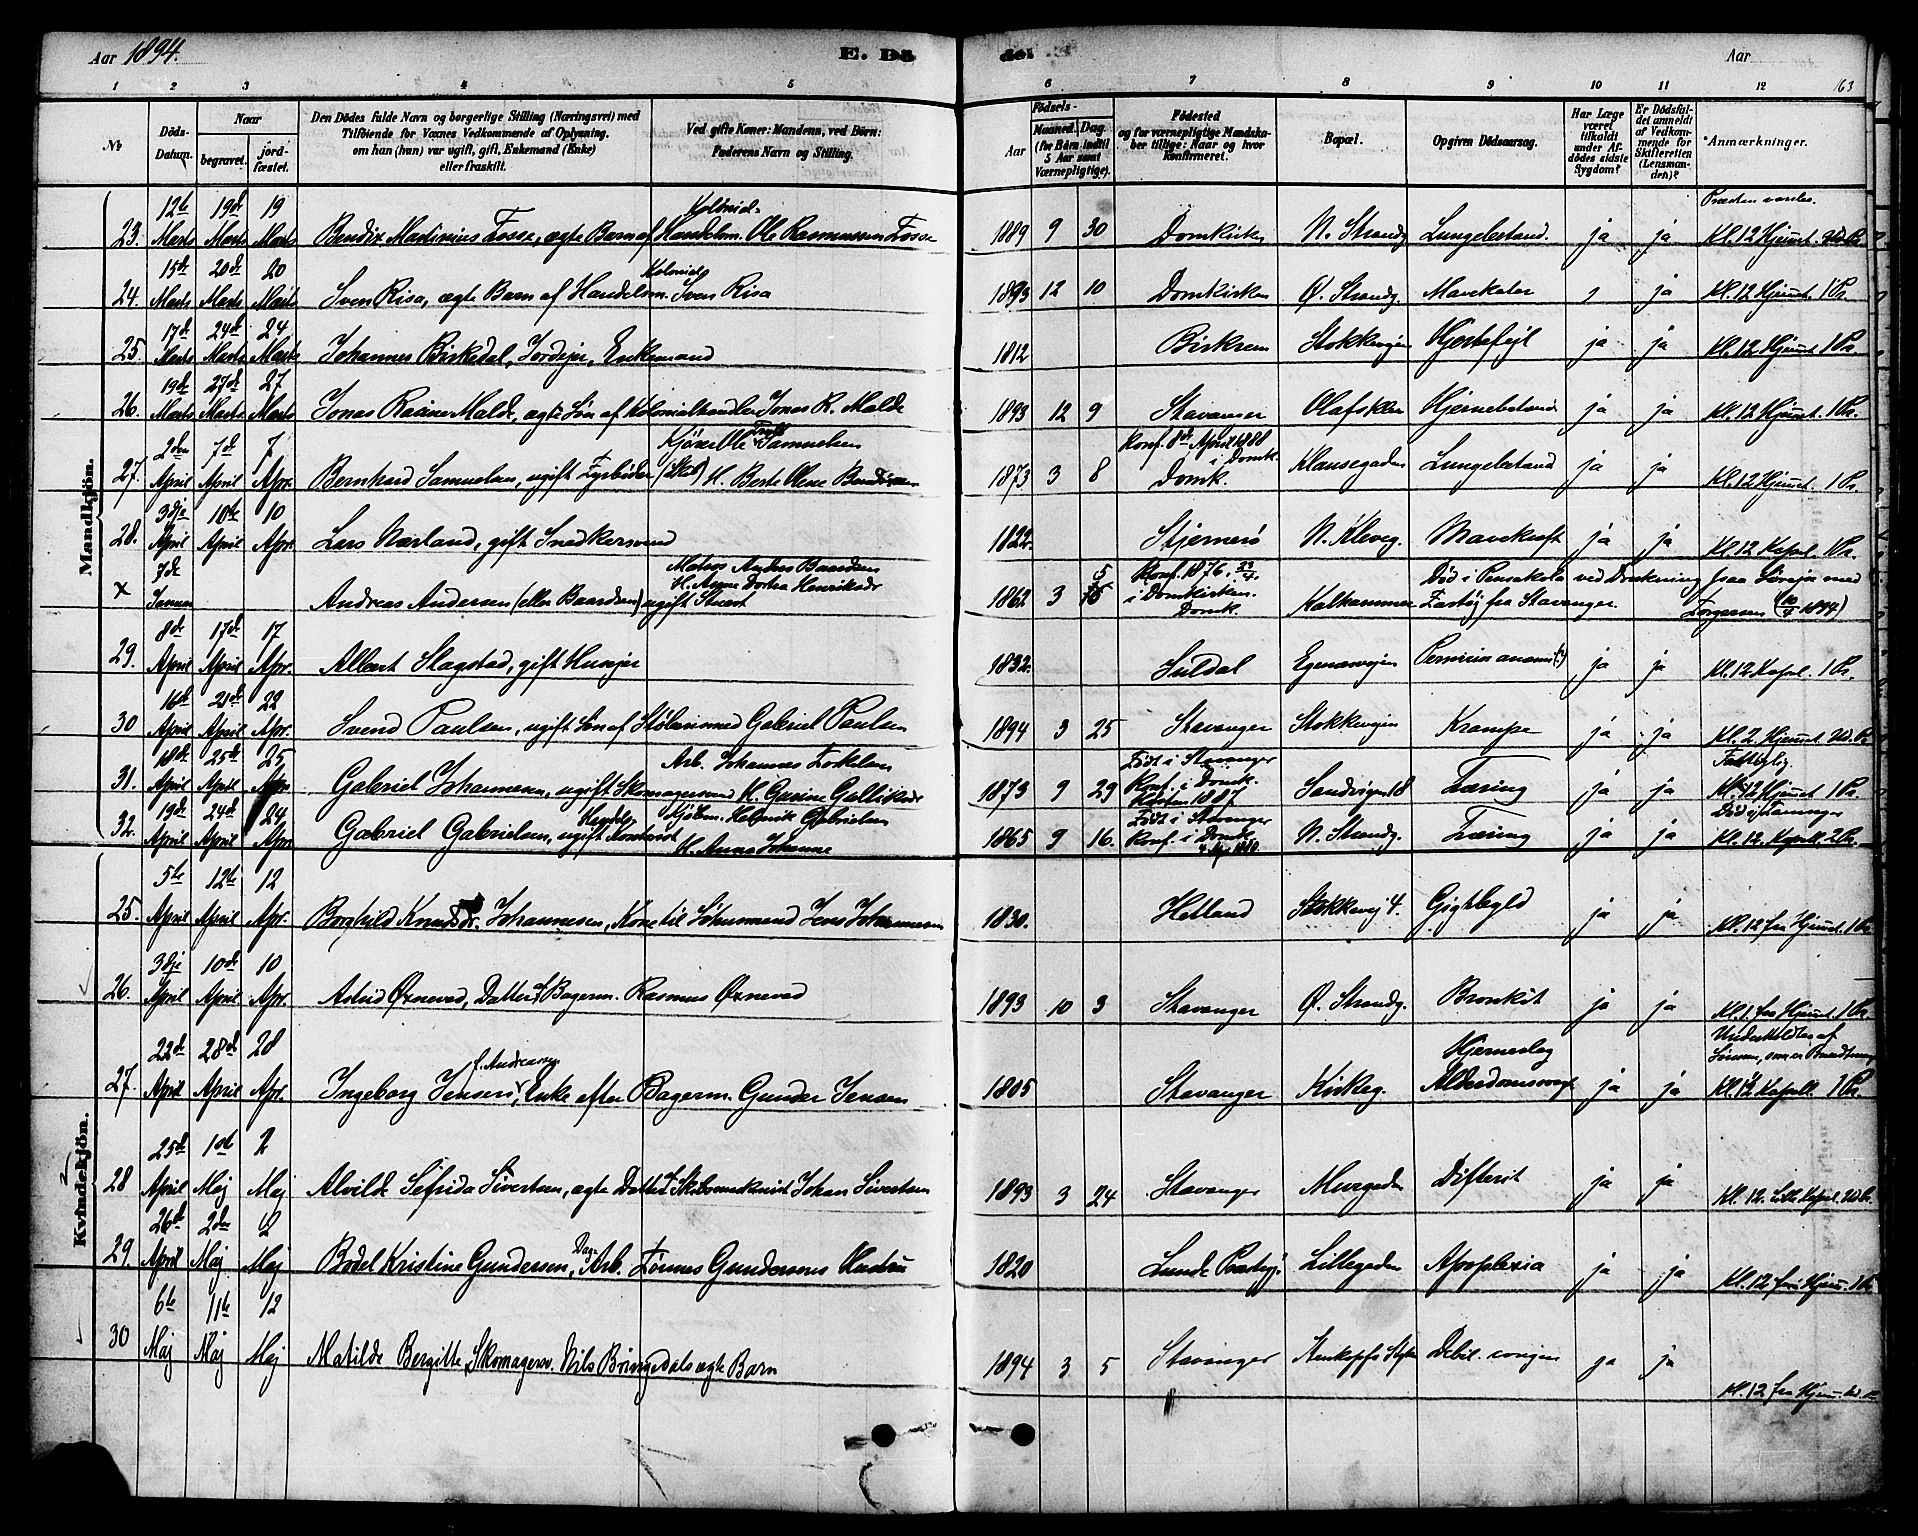 Aar 1894. E. Dö
de. Aar 163
1 2 3 4 5 6 7 8 9 10 11 12
No. Döds-Datum. Naar begravet. jord-fæstet. Den Dödes fulde Navn og borgerlige Stilling (Næringsvei) med Tilföiende for Voxnes Vedkommende af Oplysning, om han (hun) var ugift, gift, Enkemand (Enke) eller fraskilt. Ved gifte Koner: Mandens, ved Börn: Faderens Navn og Stilling.
Födsels- Aar Maaned. Dag. (for Börn indtil 5 Aar samt Værnepligtige). Födested og for værnepligtige Mandska-ber tillige: Naar og hvor konfirmeret. Bopæl. Opgiven Dödsaarsag. Har Læge været tilkaldt under Af-dödes sidste Sygdom? Er Dödsfal-det anmeldt af Vedkom-mende for Skifteretten (Lensman-den)? Anmærkninger.
Mandkjön.
23. 12te Marts 19de Marts 19 Marts Bendix Martinius Fosse, ægte Barn af Kolonial-Handelsm. Ole Rasmussen Fosse 1889 9 30 Domkirken N. Strandg. Lungebetænd. ja ja Kl. 12 Hjemmet.
24. 15de Marts 20de Marts 20 Marts Sven Risa, ægte Barn af Kolonial Handelsm. Sven Risa 1893 12 10 Domkirken Ø. Strandg. Mavekatar ja Kl. 12 Hjemmet. 1 Pr.
25. 17de Marts 24de Marts 24 Marts Johannes Birkedal, Jordejer, Enkemand 1812 Birkrem Stokkevejen Hjertefejl ja ja Kl. 12 Hjemmet 1 Pr.
26. 19de Marts 27de Marts 27 Marts Jonas Malde, ægte Søn af Kolonialhandler Jonas R. Malde 1893 12 9 Stavanger Olafsklev Hjernebetænd ja ja Kl. 12 Hjemmet. 1 Pr.
27. 2den April 7de April 7 Apr. Bernhard Samuelsen, ugift Fyrbøder Ole Samuelsen H. Berte Olene 1873 3 8 Konf. 8de April 1888 i Domk. Domk. Klausegaden Lungebetænd ja ja Kl. 12 Hjemmet. 1 Pr.
28. 3dje April 10de April 10 Apr. Lars Nærland, gift Snedkersvend 1822. Stjernerö N. Kleveg. Mavekræft ja ja Kl. 12 Kapel. 1 Pr.
x 7de Januar Andreas Andersen (eller Baardsen) ugift Stuert Matros Anders Baardsen H. Anne Dortea Henriksdr 1862 3 5 Konf. 1876 i Domkirken. Domk. Kalhammer Død i Pensakola ved Drukning fra Fartøj fra Stavanger.
29. 8de April 17de April 17 Apr. Albert Slagstad, gift Husejer 1832. Suldal Egenæsvejen ja ja Kl. 12 Kapel. 1 Pr.
30 16de April 21de April 22 Apr. Svend Paulsen, ugift Søn af Gabriel Paulsen 1894 3 25 Stavanger Stokkevejen Krampe ja ja Kl. 2. Hjemmet
31. 18de April 25de April 25 Apr Gabriel Johannesen, ugift Skomagersvend Arb. Johannes Torkelsen H. Gurine 1873 9 29 Født i Stavanger Konf. i Domk. 1887 Sandvigen 18 Tæring ja ja Fattiglig Kl. 12 Hjemmet 1 Pr.
32. 19de April 24de April 24 Apr. Gabriel Gabrielsen, ugift Kjøbm. Henrik Gabrielsen H. Anna Johanne 1865 9 16. Født i Stavanger Konf. i Domk. N. Strandg. Tæring ja ja Kl. 12. Kapell. 2 Pr.
Kvindekjön.
25. 5te April 12te April 12 Apr. Borghild Knudsdr. Johannesen, Kone til Sømand Jens Johannesen 1830. Hetland Stokkevej 4. Gigtbyld ja ja Kl. 12 fra Hjemmet. 1 Pr.
26. 3dje April 10de April 10 Apr. Astrid Øxnevad, Datter af Bagerm. Rasmus Øxnevad 1893 10 3 Stavanger Ø. Strandg. Bronkit ja ja Kl. 1. fra Hjemmet 1 Pr.
27. 22de April 28de April 28 Apr. Ingeborg Jensen, f. Andreassen Enke efter Bagerm. Gunder Jensen 1805 Stavanger Kirkeg. Hjerneslag Alderdomssvagh. ja ja Underholdtes af Sønnen, Kl. 12 Kapell 1 Pr.
28 25de April 1ste Maj 2 Maj Alvilde Sefrida Sivertsen, ægte Datter af Johan Sivertsen 1893 3 24 Stavanger Murgaden Difterit ja ja Kl. 12. Kapel.
29. 26de April 2den Maj 2 Maj Bodel Kristine Gundersen, Dag-Arb. Tønnes Gundersens Hustru 1820 Lunde Præstegj. Lillegaden Apoplexia ja ja Kl. 12 fra Hjem. 1 Pr.
30 6te Maj 11te Maj 12 Maj Matilde Bergitte, Skomagersv. Nils Bringedals ægte Barn 1894 3 5 Stavanger Debil. congen ja ja Kl. 12 fra Hjem.